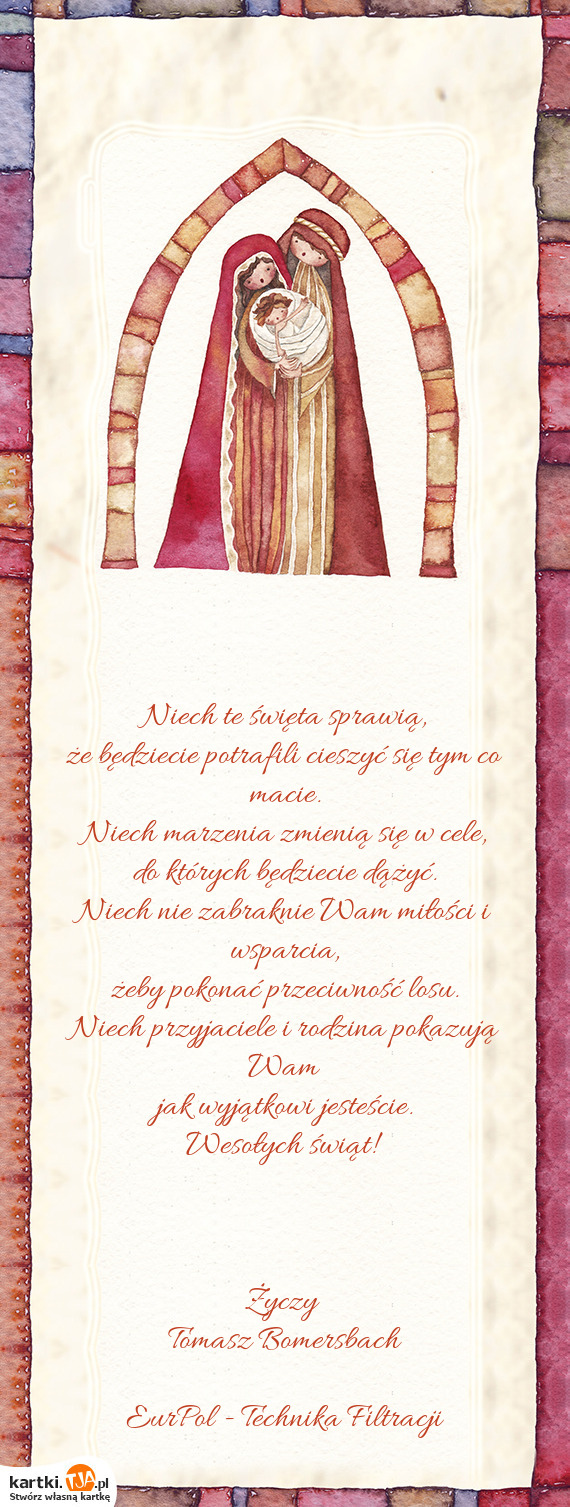 Niech te święta sprawią,
że będziecie potrafili cieszyć się tym co
macie.
Niech marzenia zmienią się w cele,
do których będziecie dążyć.
Niech nie zabraknie Wam miłości i
wsparcia,
żeby pokonać przeciwność losu.
Niech przyjaciele i rodzina pokazują
Wam
jak wyjątkowi jesteście.
Wesołych świąt!
Życzy
Tomasz Bomersbach
EurPol - Technika Filtracji
kartki.TJA.pl
Stwórz własną kartkę